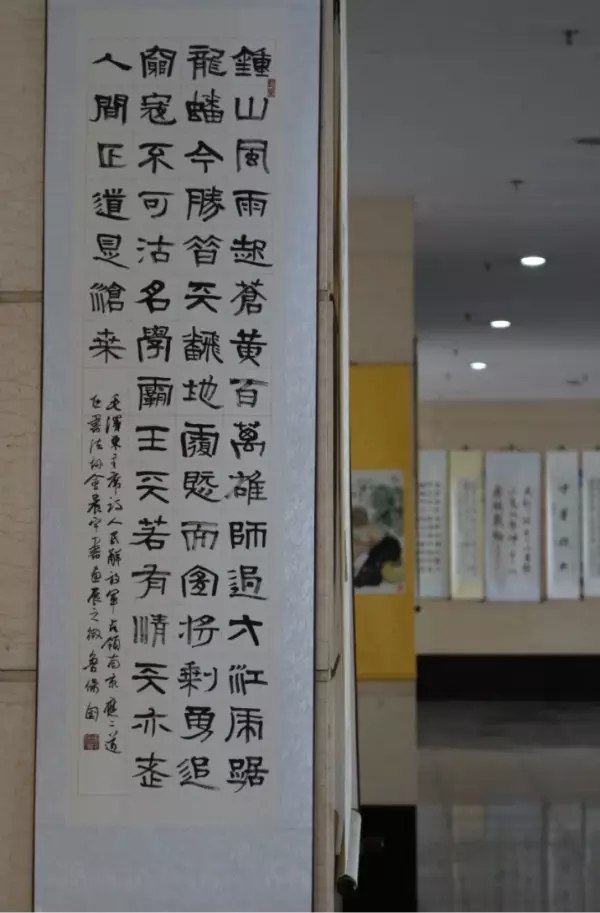 鍾山風雨起蒼黃百萬雄師過大江虎踞
龍蟠今勝昔天翻地覆慨而宜将剩勇追
窮寇不可沽名學霸王天若有情天亦老
人間正道是滄桒
毛澤東主席詩人民解放軍占領南京應二道
区書法協会晨宇書画展之